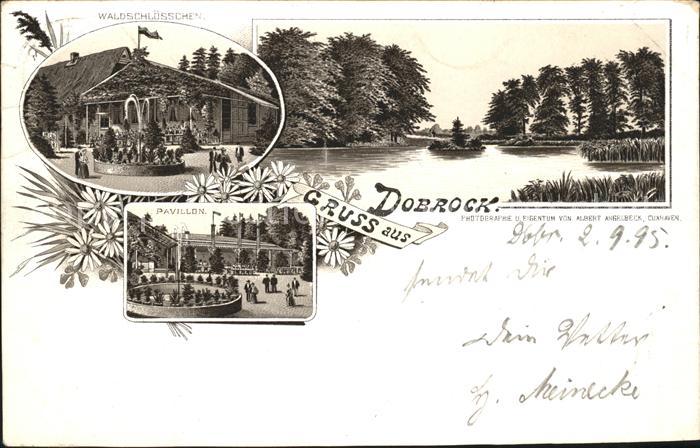 WALDSCHLÖSSCHEN.
PAVILLON.
GRUSS aus
DOBROCK.
PHOTOGRAPHIE U. EIGENTUM VON ALBERT ANGELBECK, CUXHAVEN.
Dobr. 2.9.95.
sendet Dir
Dein Vetter
Hz. Meinecke